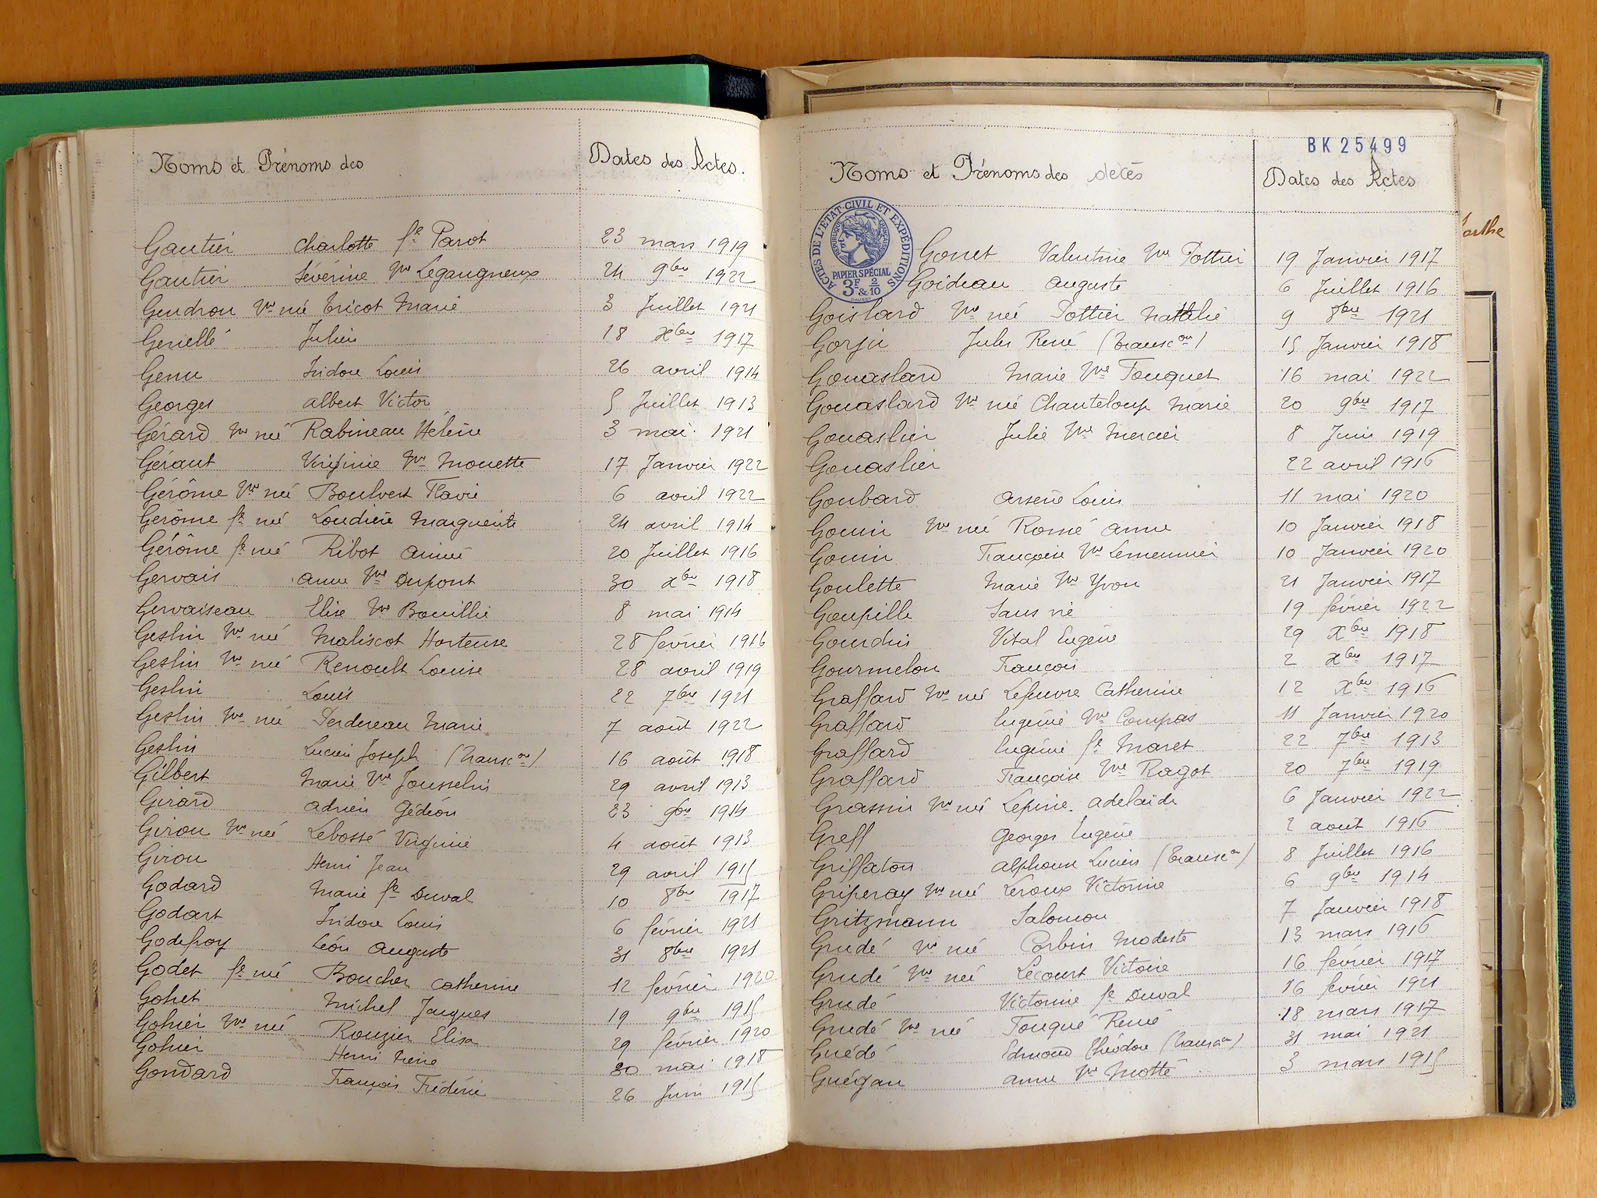 Noms et Prénoms des
Dates des Actes.
Gautier Charlotte fe Parot 23 mars 1919
Gautier Séverine Vve Legangneux 24 9bre 1922
Gendron Vve née Tricot Marie 3 Juillet 1921
Genellé Julien 18 Xbre 1917
Genu Isidore Louis 26 avril 1914
Georges Albert Victor 5 Juillet 1913
Gérard Vve née Rabineau Hélène 3 mai 1921
Géraut Virginie Vve Monette 17 Janvier 1922
Gérôme Vve née Boulvert Flavie 6 avril 1922
Gérôme fe née Loudière Marguerite 24 avril 1914
Gérôme fe née Ribot Aimée 20 Juillet 1916
Gervais Anne Vve Dupont 30 Xbre 1918
Gervaiseau Elise Vve Bouillie 8 mai 1914
Geslin Vve née Maliscot Hortense 28 février 1916
Geslin Vve née Renoult Louise 28 avril 1919
Geslin Louis 22 7bre 1921
Geslin Vve née Perdereau Marie 7 août 1922
Geslin Lucien Joseph (Transcon) 16 août 1918
Gilbert Marie Vve Jousselin 29 avril 1913
Girard Adrien Gédéon 23 9bre 1914
Girou Vve née Lebossé Virginie 4 août 1913
Girou Henri Jean 29 avril 1915
Godard Marie fe Duval 10 8bre 1917
Godart Isidore Louis 6 février 1921
Godefroy Léon Auguste 31 8bre 1921
Godet fe née Boucher Catherine 12 février 1920
Gohet Michel Jacques 19 9bre 1915
Gohier Vve née Rouzier Elisa 29 février 1920
Gohier Henri René 20 mai 1918
Gondard François Fréderic 26 Juin 1915
BK 25499
Noms et Prénoms des décès
Dates des Actes
ACTES DE L'ETAT-CIVIL ET EXPÉDITIONS
PAPIER SPÉCIAL
3F & 2/10
arthe
Gonet Valentine Vve Pottier 19 Janvier 1917
Goideau Auguste 6 Juillet 1916
Goislard Vve née Pottier Nathalie 9 8bre 1921
Gorju Jules René (Transcon) 15 Janvier 1918
Gouaslard Marie Vve Fouquet 16 mai 1922
Gouaslard Vve née Chanteloup Marie 20 9bre 1917
Gouaslier Julie Vve Mercier 8 Juin 1919
Gouaslier 22 avril 1916
Goubard Arsène Louis 11 mai 1920
Gouin Vve née Romé Anne 10 Janvier 1918
Gouin Françoise Vve Lemeunier 10 Janvier 1920
Goulette Marie Vve Yvon 21 Janvier 1917
Goupille Sans vie 19 février 1922
Gourdin Vital Eugène 29 Xbre 1918
Gourmelon François 2 Xbre 1917
Graffard Vve née Lefeuvre Catherine 12 Xbre 1916
Graffard Eugénie Vve Compas 11 Janvier 1920
Graffard Eugénie fe Maret 22 7bre 1913
Graffard Françoise Vve Ragot 20 7bre 1919
Grassin Vve née Lépine Adelaïde 6 Janvier 1922
Greff Georges Eugène 2 août 1916
Griffaton Alphonse Lucien (Transcon) 8 Juillet 1916
Griperay Vve née Leroux Victorine 6 9bre 1914
Gritzmann Salomon 7 Janvier 1918
Grudé Vve née Corbin Modeste 13 mars 1916
Grudé Vve née Lecourt Victoire 16 février 1917
Grudé Victorine fe Duval 16 février 1921
Grudé Vve née Fouqué Renée 18 mars 1917
Guédé Edmond Théodore (Transcon) 31 mai 1921
Guégan Anne Vve Motte 3 mars 1915